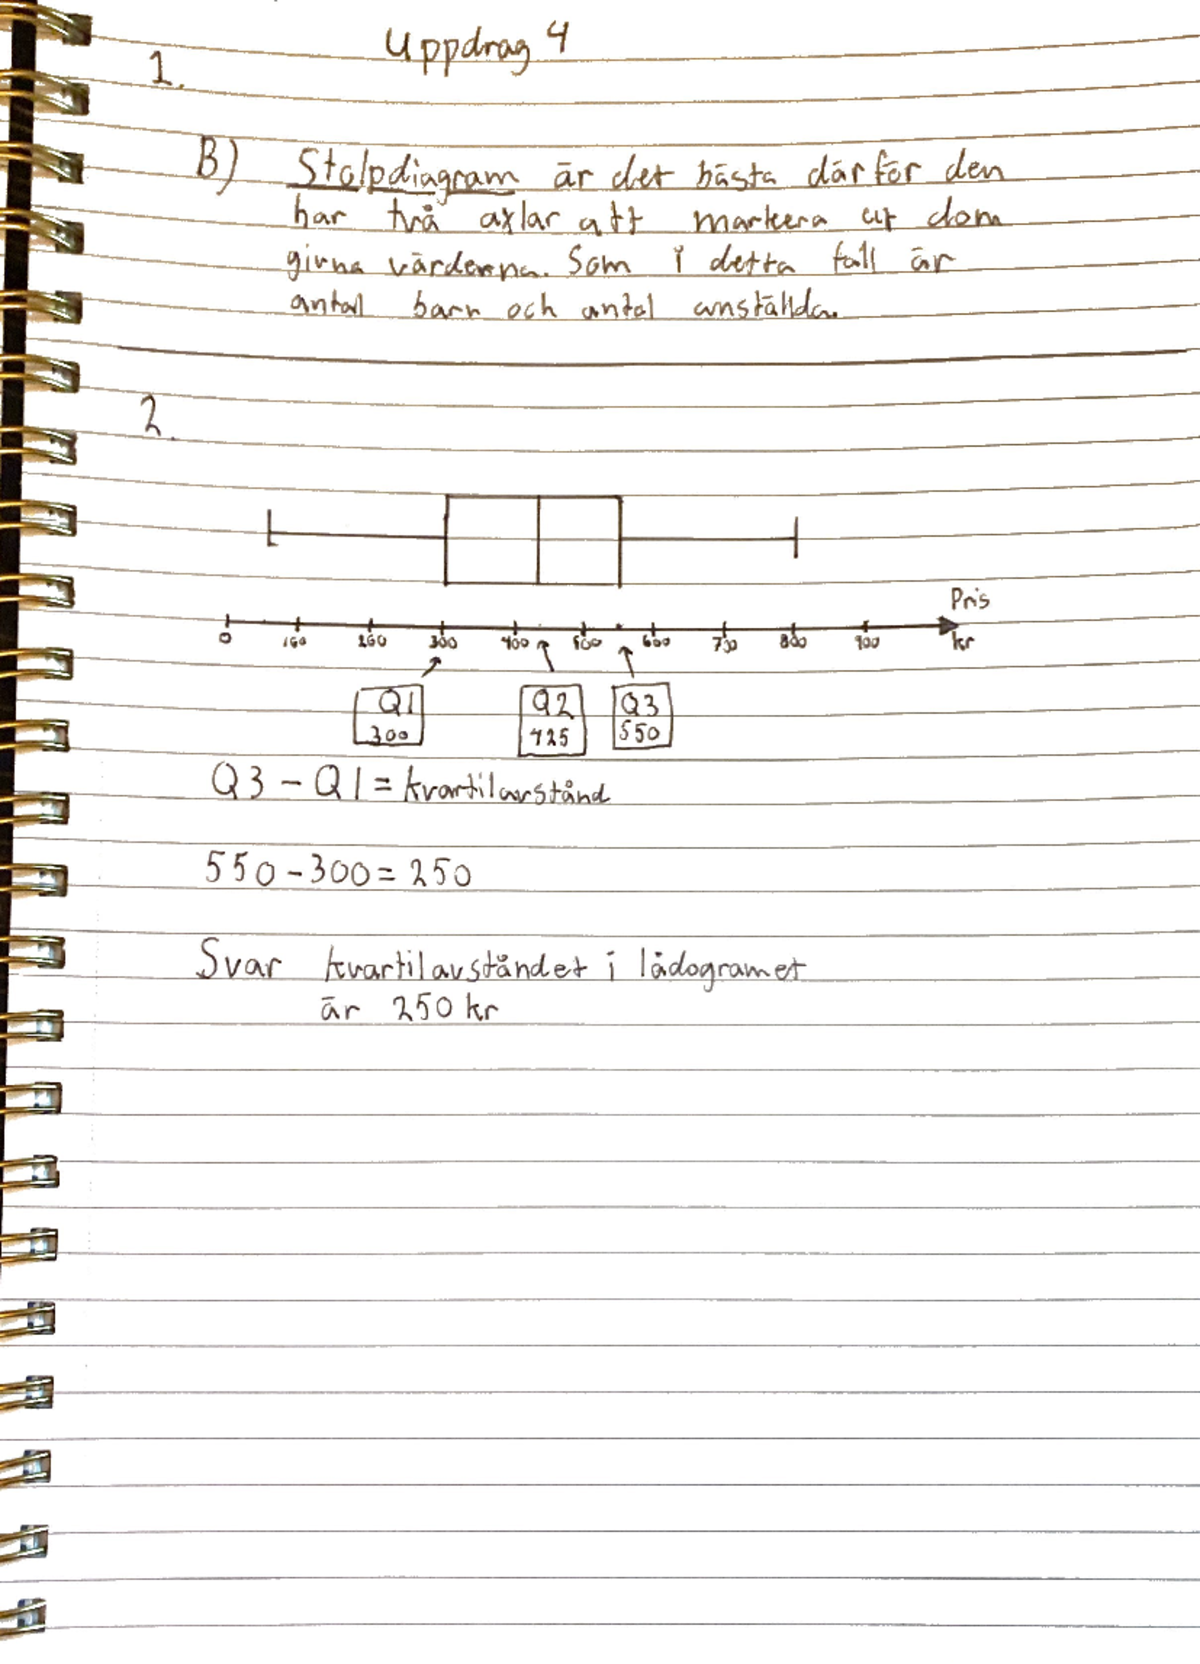 Uppdrag 4
1.
B) Stolpdiagram är det bästa därför den
har två axlar att markera ut dom
givna värdena. Som i detta fall är
antal barn och antal anställda.
2.
Pris
0 100 200 300 400 500 600 700 800 900 kr
Q1 Q2 Q3
300 425 550
Q3 - Q1 = kvartilavstånd
550 - 300 = 250
Svar kvartilavståndet i lådogramet
är 250 kr